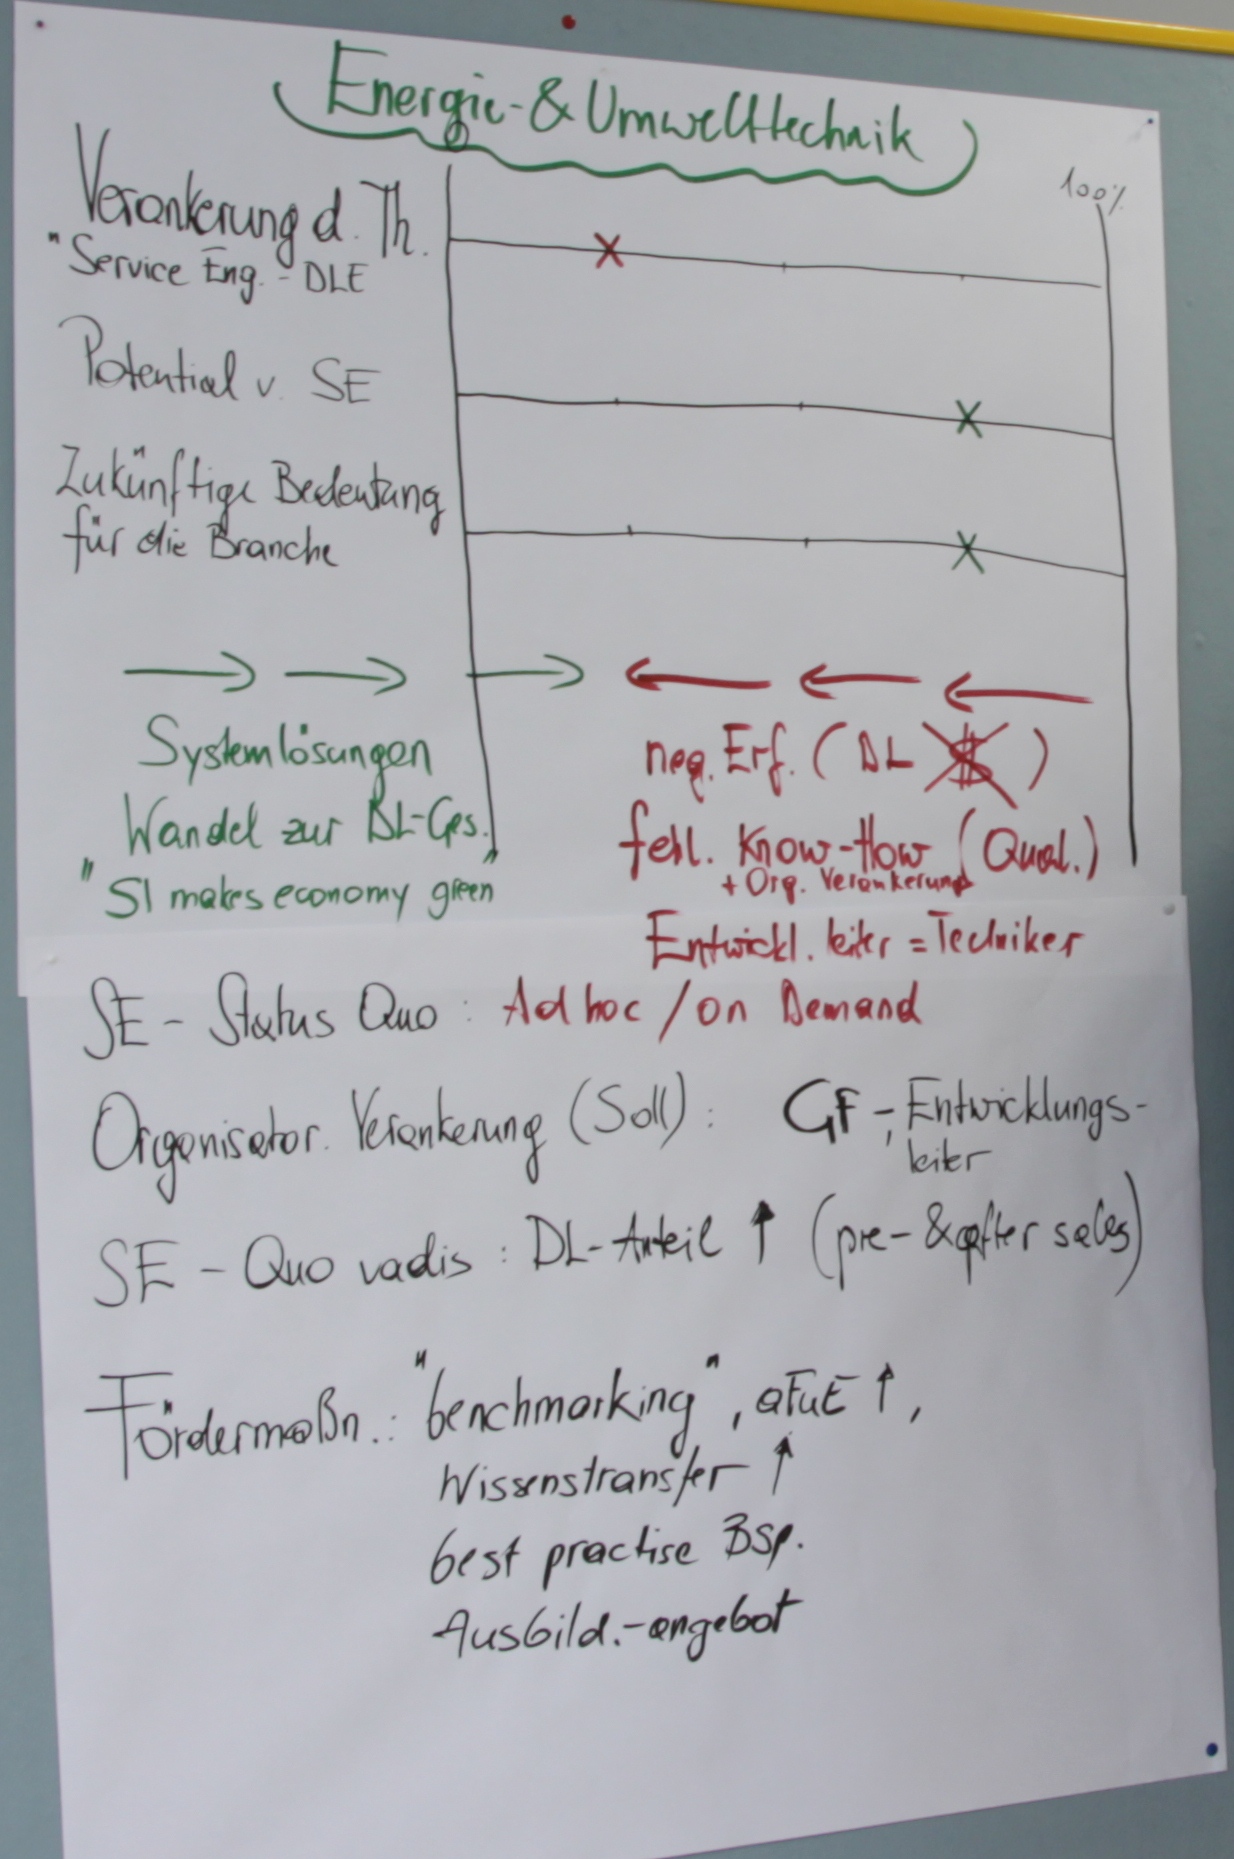 Energie-&Umwelttechnik
100%
Verankerung d. Th.
"Service Eng. - DLE
Potential v. SE
Zukünftige Bedeutung
für die Branche
Systemlösungen
Wandel zur DL-Ges.
"SI makes economy green"
neg. Erf. (DL $)
fehl. Know-How (Qual.)
+ Org. Verankerung
Entwickl. leiter = Techniker
SE - Status Quo : Ad hoc / on Demand
Organisator. Verankerung (Soll) : GF -, Entwicklungs-
leiter
SE - Quo vadis : DL-Anteil ↑ (pre- & after sales)
Fördermaßn.: "benchmarking", aFuE ↑,
Wissenstransfer ↑
best practise Bsp.
Ausbild.-angebot